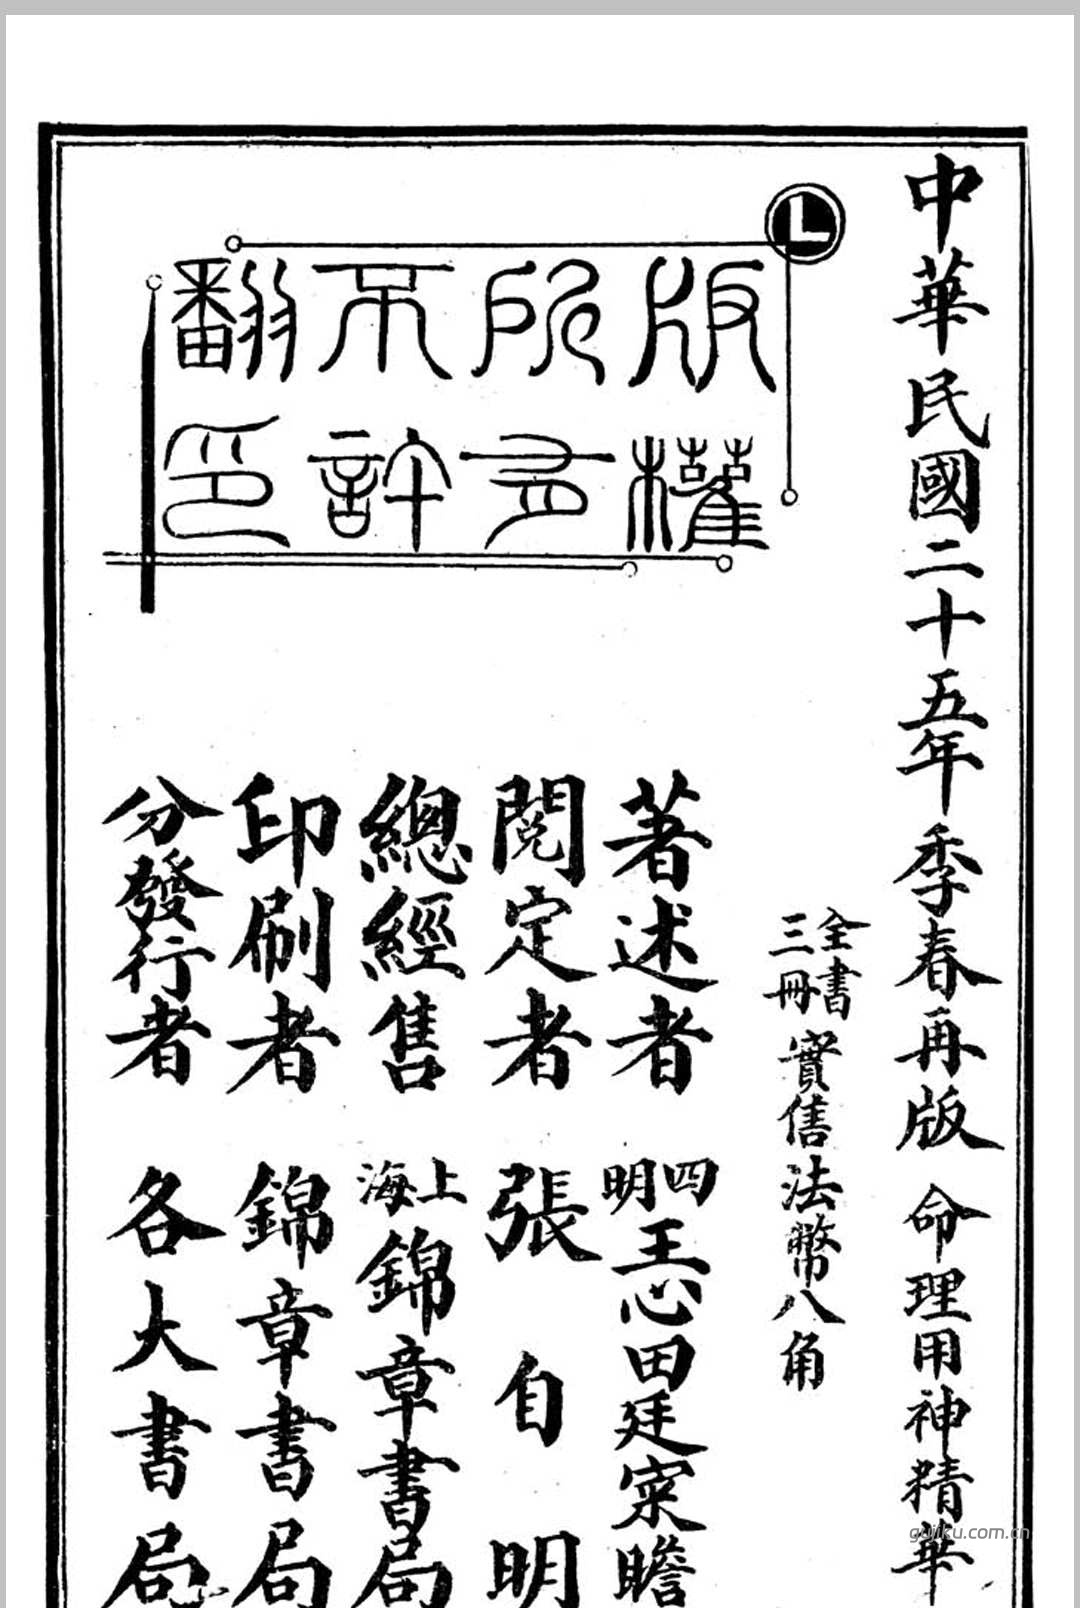 中華民國二十五年季春再版 命理用神精華
全書三冊 實售法幣八角
版權所有不許翻印
著述者 四明王心田廷寀瞻
閱定者 張自明
總經售 上海錦章書局
印刷者 錦章書局
分發行者 各大書局
gujiku.com.cn